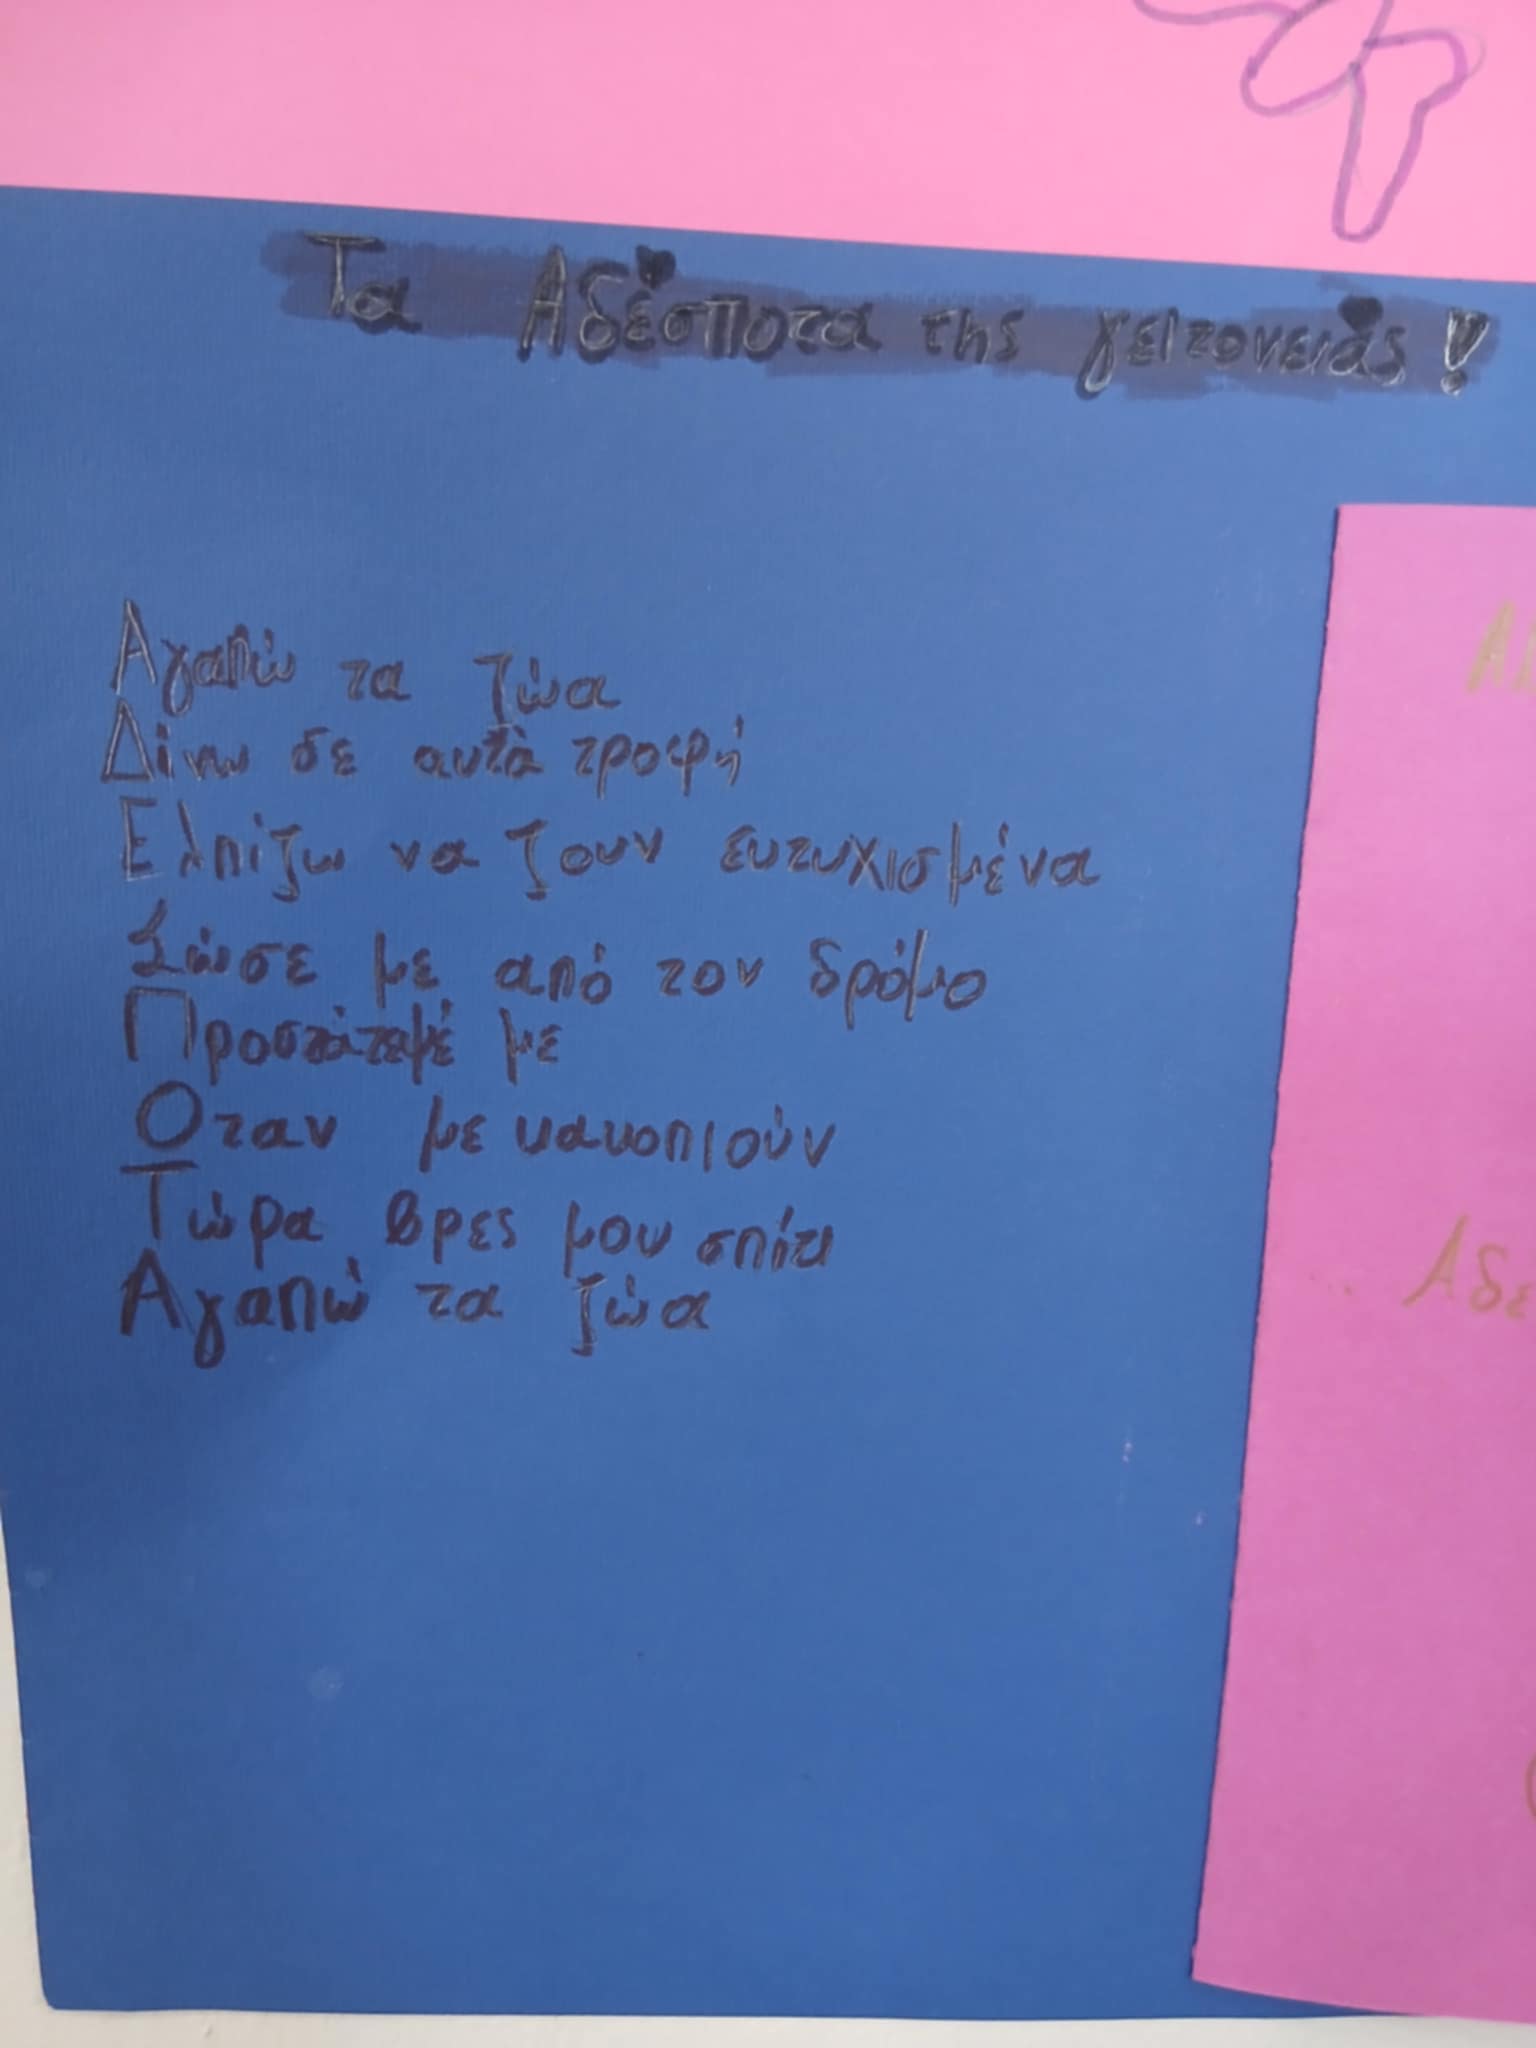 Τα Αδέσποτα της γειτονειάς!
Αγαπώ τα ζώα
Δίνω σε αυτά τροφή
Ελπίζω να ζουν ευτυχισμένα
Σώσε με από τον δρόμο
με
Οταν με κακοπιούν
Τώρα βρες μου σπίτι
Αγαπώ τα ζώα